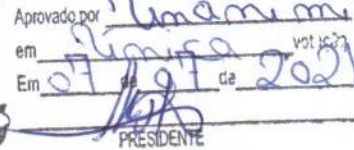 Aprovado por Unanimi
em Única votação
Em 07 de 07 de 2021
PRESIDENTE